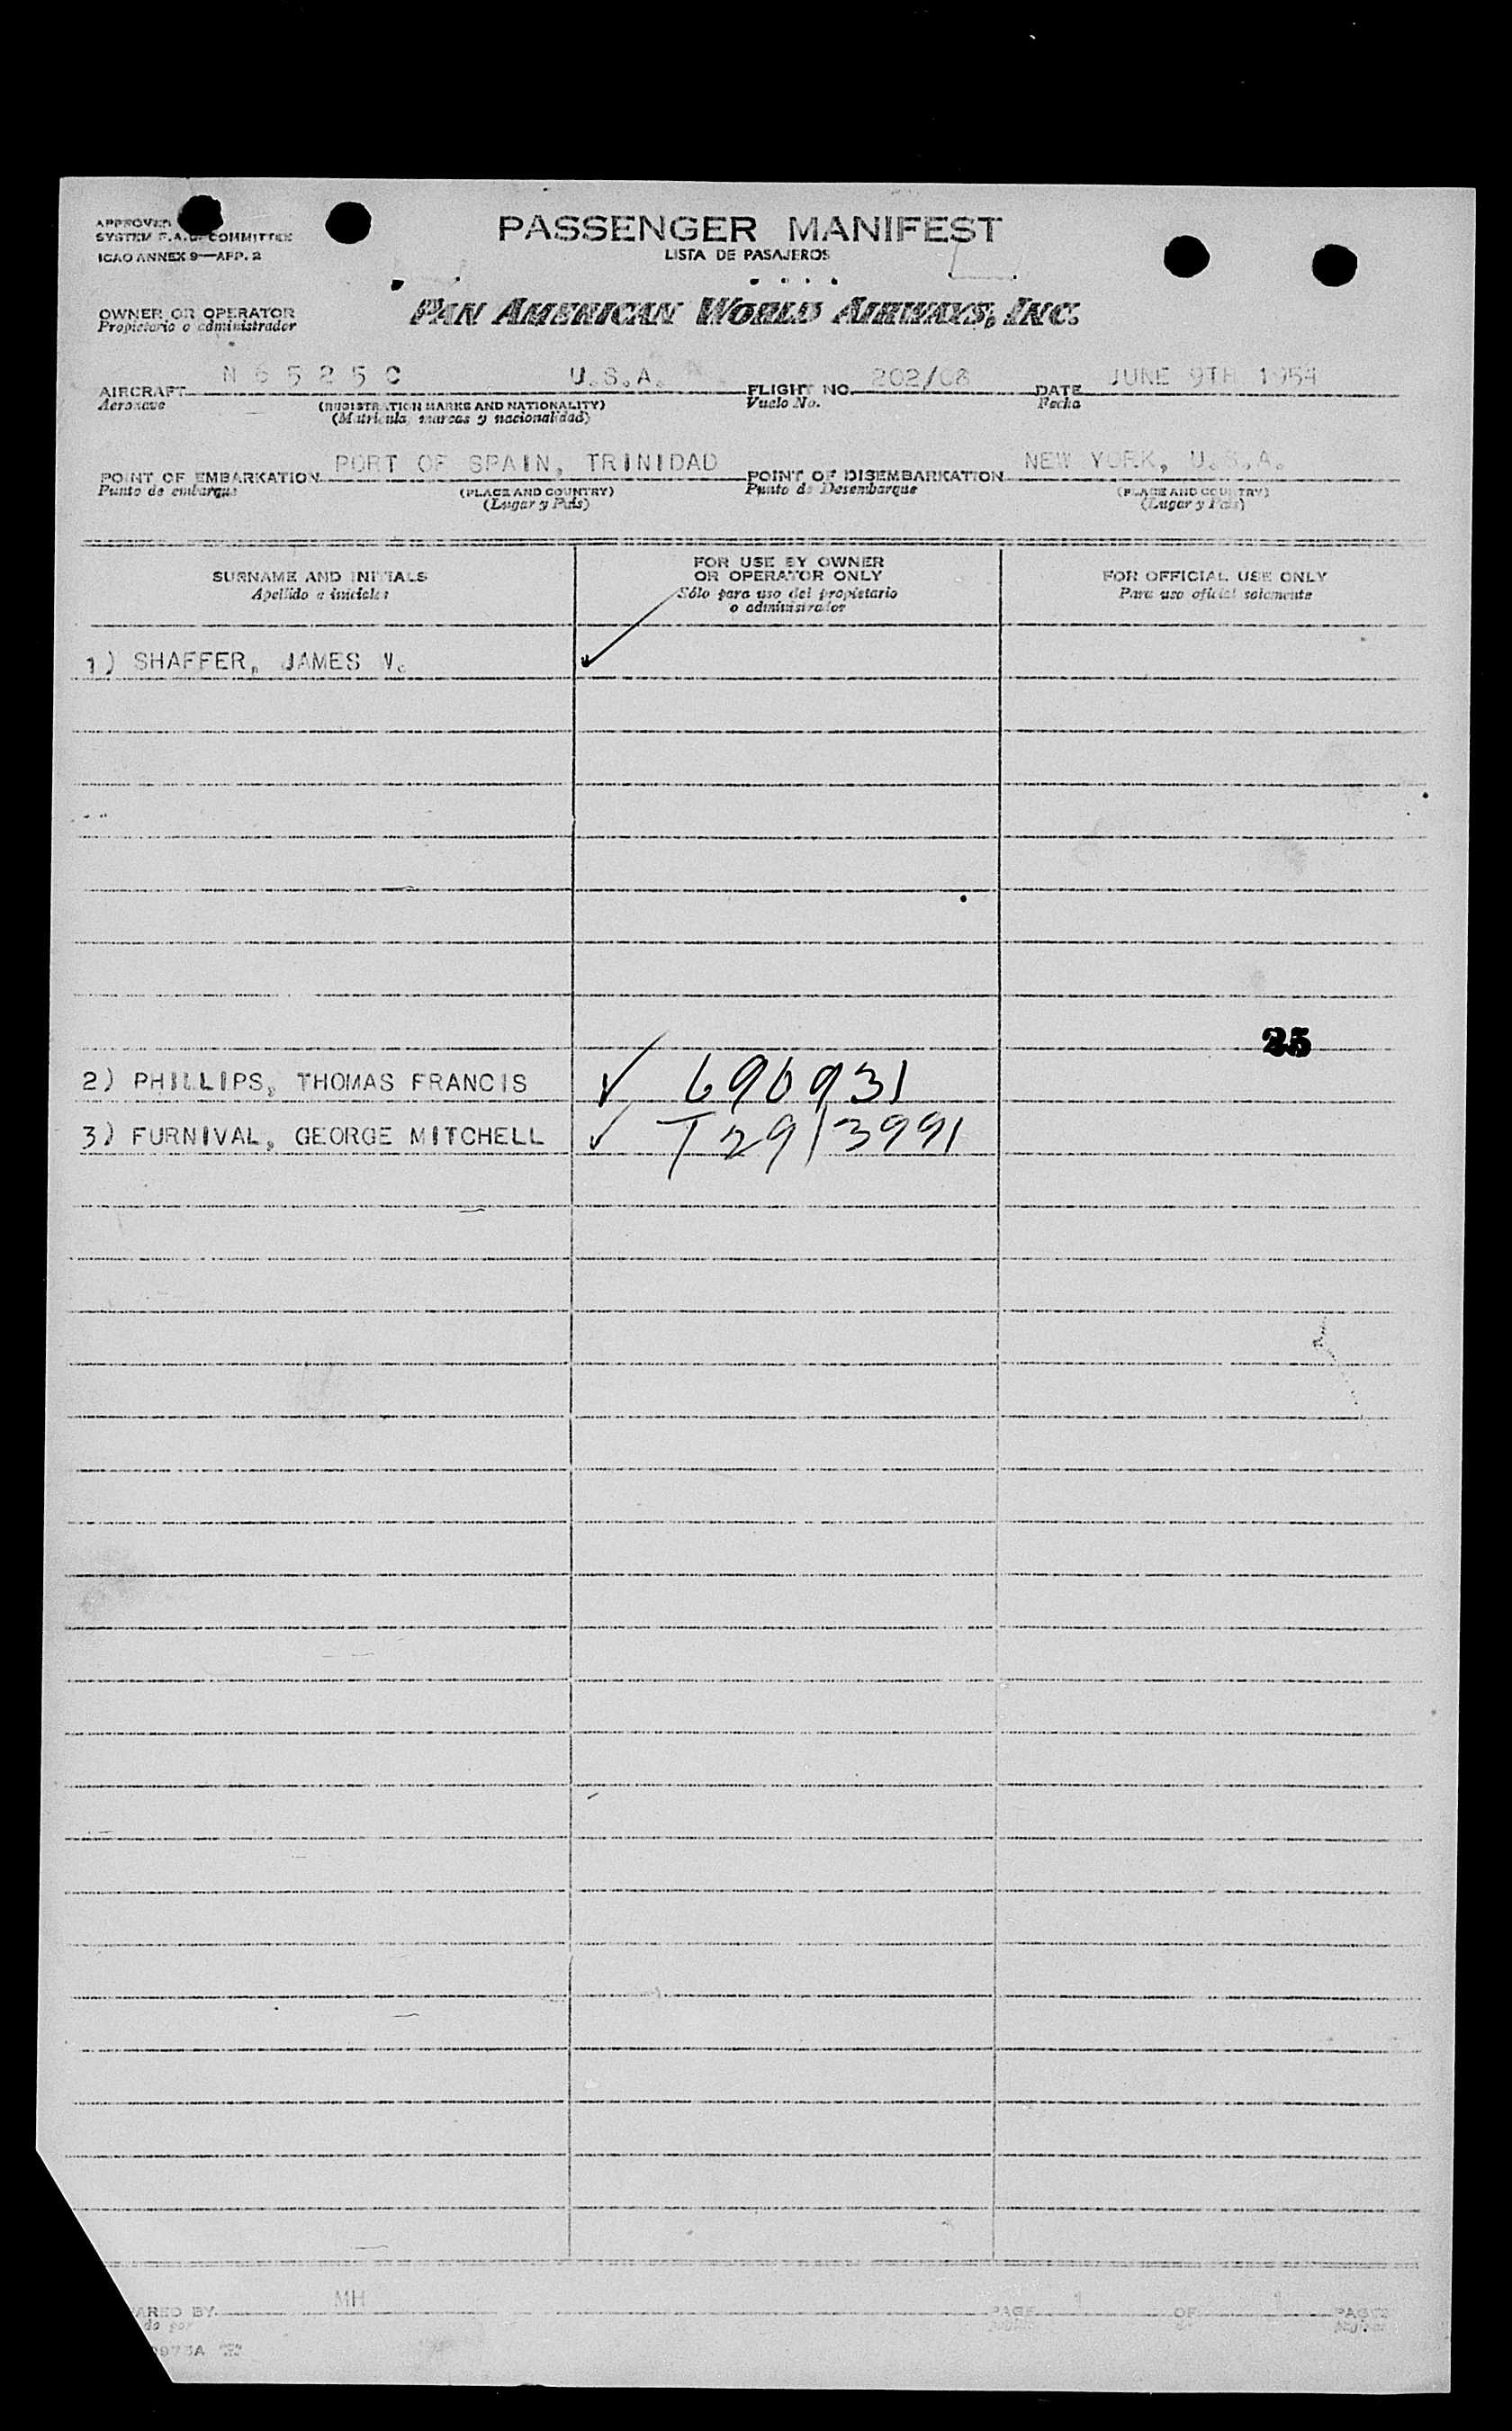 APPROVED
SYSTEM F.A.L. COMMITTEE
ICAO ANNEX 9—APP. 2
PASSENGER MANIFEST
LISTA DE PASAJEROS
OWNER OR OPERATOR
Propietario o administrador
PAN AMERICAN WORLD AIRWAYS, INC.
AIRCRAFT N 6 5 2 5 C U.S.A. FLIGHT NO. 202/08 DATE JUNE 9TH 1954
Aeronave (REGISTRATION MARKS AND NATIONALITY) Vuelo No. Fecha
(Matricula, marcas y nacionalidad)
POINT OF EMBARKATION PORT OF SPAIN, TRINIDAD POINT OF DISEMBARKATION NEW YORK, U.S.A.
Punto de embarque (PLACE AND COUNTRY) Punto de Desembarque (PLACE AND COUNTRY)
(Lugar y País) (Lugar y País)
SURNAME AND INITIALS
Apellido e iniciales
FOR USE BY OWNER
OR OPERATOR ONLY
Sólo para uso del propietario
o administrador
FOR OFFICIAL USE ONLY
Para uso oficial solamente
1) SHAFFER, JAMES V.
25
2) PHILLIPS, THOMAS FRANCIS 690931
3) FURNIVAL, GEORGE MITCHELL T2913991
MH
BY PAGE 1 OF 1 PAGES
por